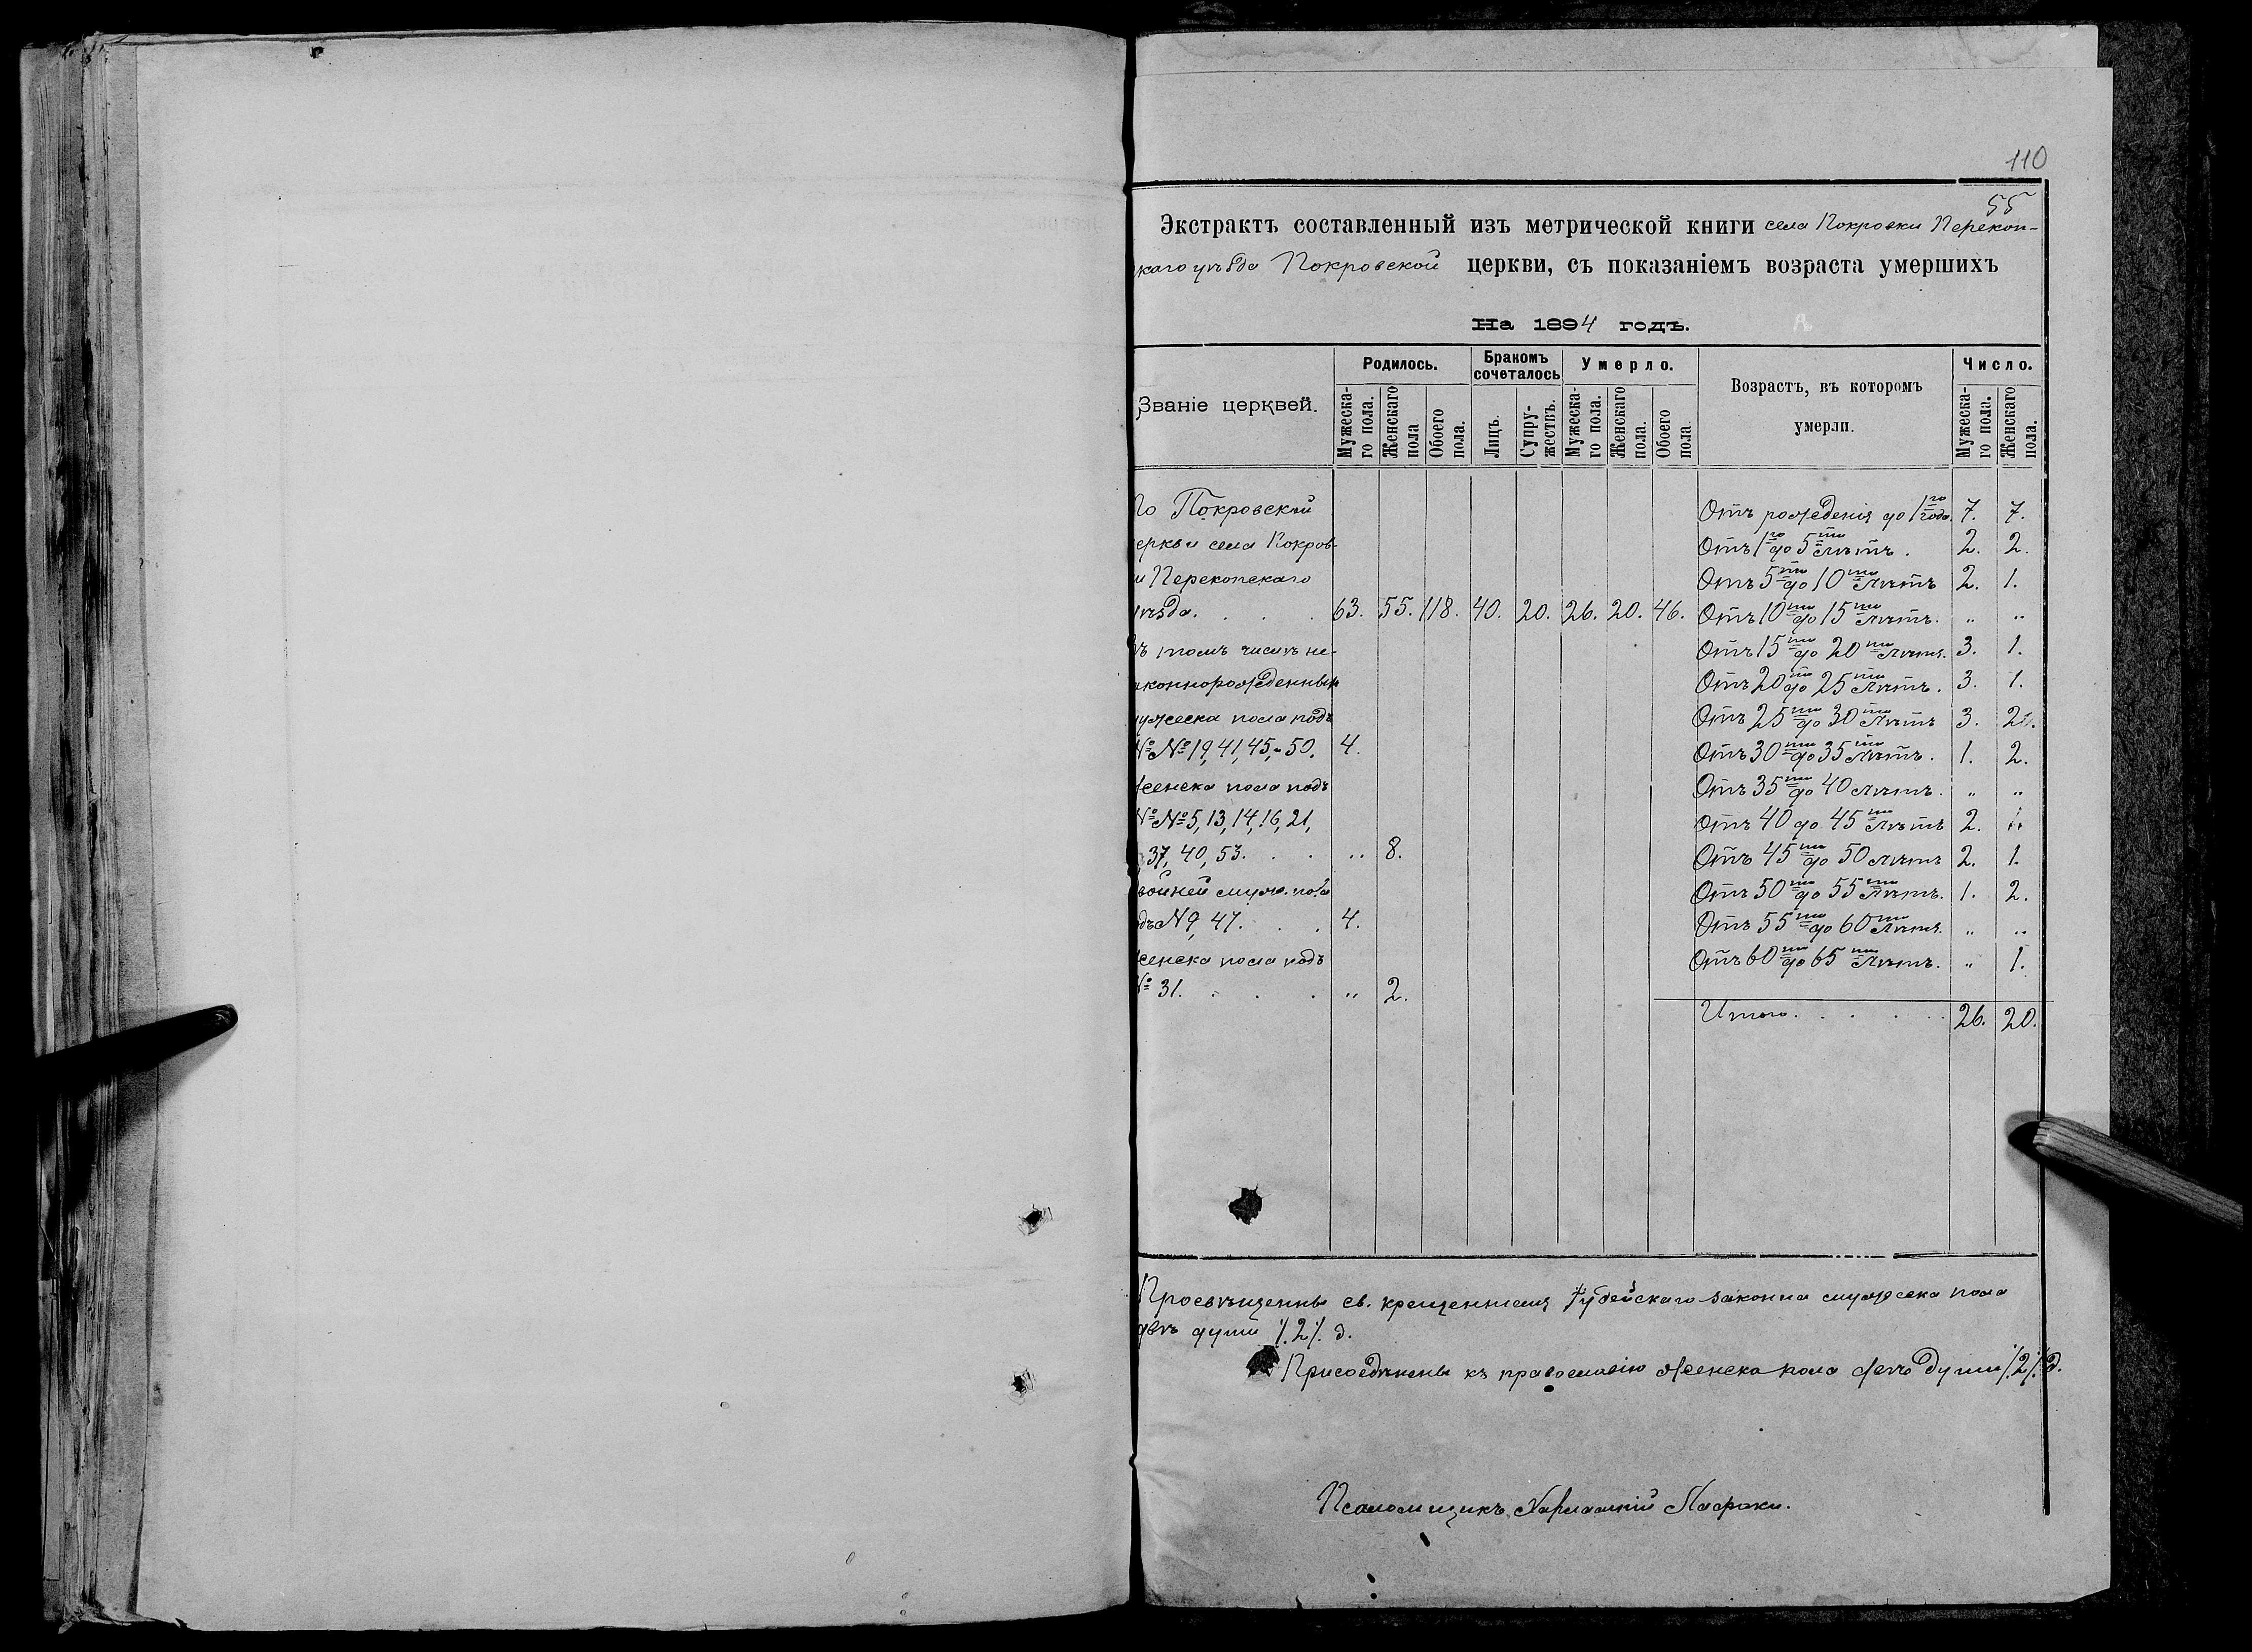 110
55
Экстрактъ составленный изъ метрической книги села Покровки Перекоп-
каго уѣзда Покровской церкви, съ показаніемъ возраста умершихъ
На 1894 годъ.
Званіе церквей.
Родилось.
Бракомъ сочеталось
Умерло.
Возрастъ, въ которомъ умерли.
Число.
Мужеска-го пола.
Женскаго пола
Обоего пола.
Лицъ.
Супру-жествъ.
Мужеска-го пола.
Женскаго пола.
Обоего пола
Мужеска-го пола.
Женскаго пола.
По Покровской Отъ рожденія до 1го года. 7. 7.
еркви села Покров- Отъ 1го до 5ти лѣтъ. 2. 2.
и Перекопскаго Отъ 5ти до 10ти лѣтъ 2. 1.
уѣзда. . . . 63. 55. 118. 40. 20. 26. 20. 46. Отъ 10ти до 15ти лѣтъ. „ „
ъ томъ числѣ не- Отъ 15ти до 20ти лѣтъ. 3. 1.
аконнорожденныхъ Отъ 20ти до 25ти лѣтъ. 3. 1.
мужеска пола подъ Отъ 25ти до 30ти лѣтъ 3. 2.
№№ 19, 41, 45, 50. 4. Отъ 30ти до 35ти лѣтъ. 1. 2.
женска пола подъ Отъ 35ти до 40 лѣтъ. „ „
№№ 5, 13, 14, 16, 21, Отъ 40 до 45ти лѣтъ 2. „
37, 40, 53. . . „ 8. Отъ 45ти до 50 лѣтъ 2. 1.
войней муж. пола Отъ 50ти до 55ти лѣтъ. 1. 2.
дъ № 9, 47. . . 4. Отъ 55ти до 60ти лѣтъ. „ „
женска пола подъ Отъ 60ти до 65ти лѣтъ. „ 1.
№ 31. . . . „ 2.
Итого. . . . . 26. 20.
Просвѣщенны св. крещеніемъ Іудейскаго закона мужеска пола
двѣ души /.2/. д.
Присоединены къ православію женска пола двѣ души /.2/. д.
Псаломщикъ Харлампій